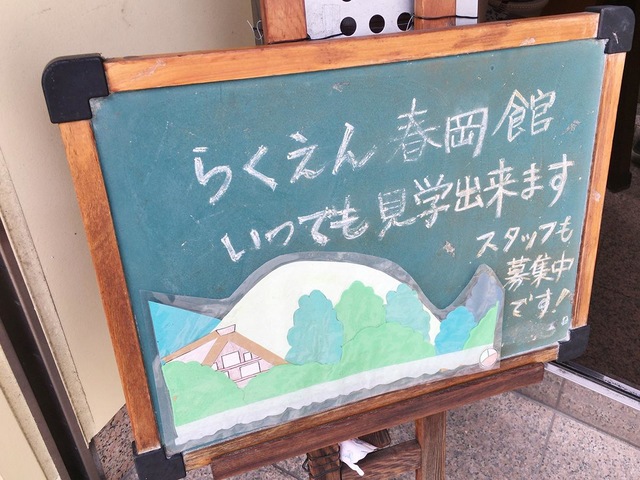 らくえん 春岡館
いつでも見学出来ます
スタッフも
募集中
です!